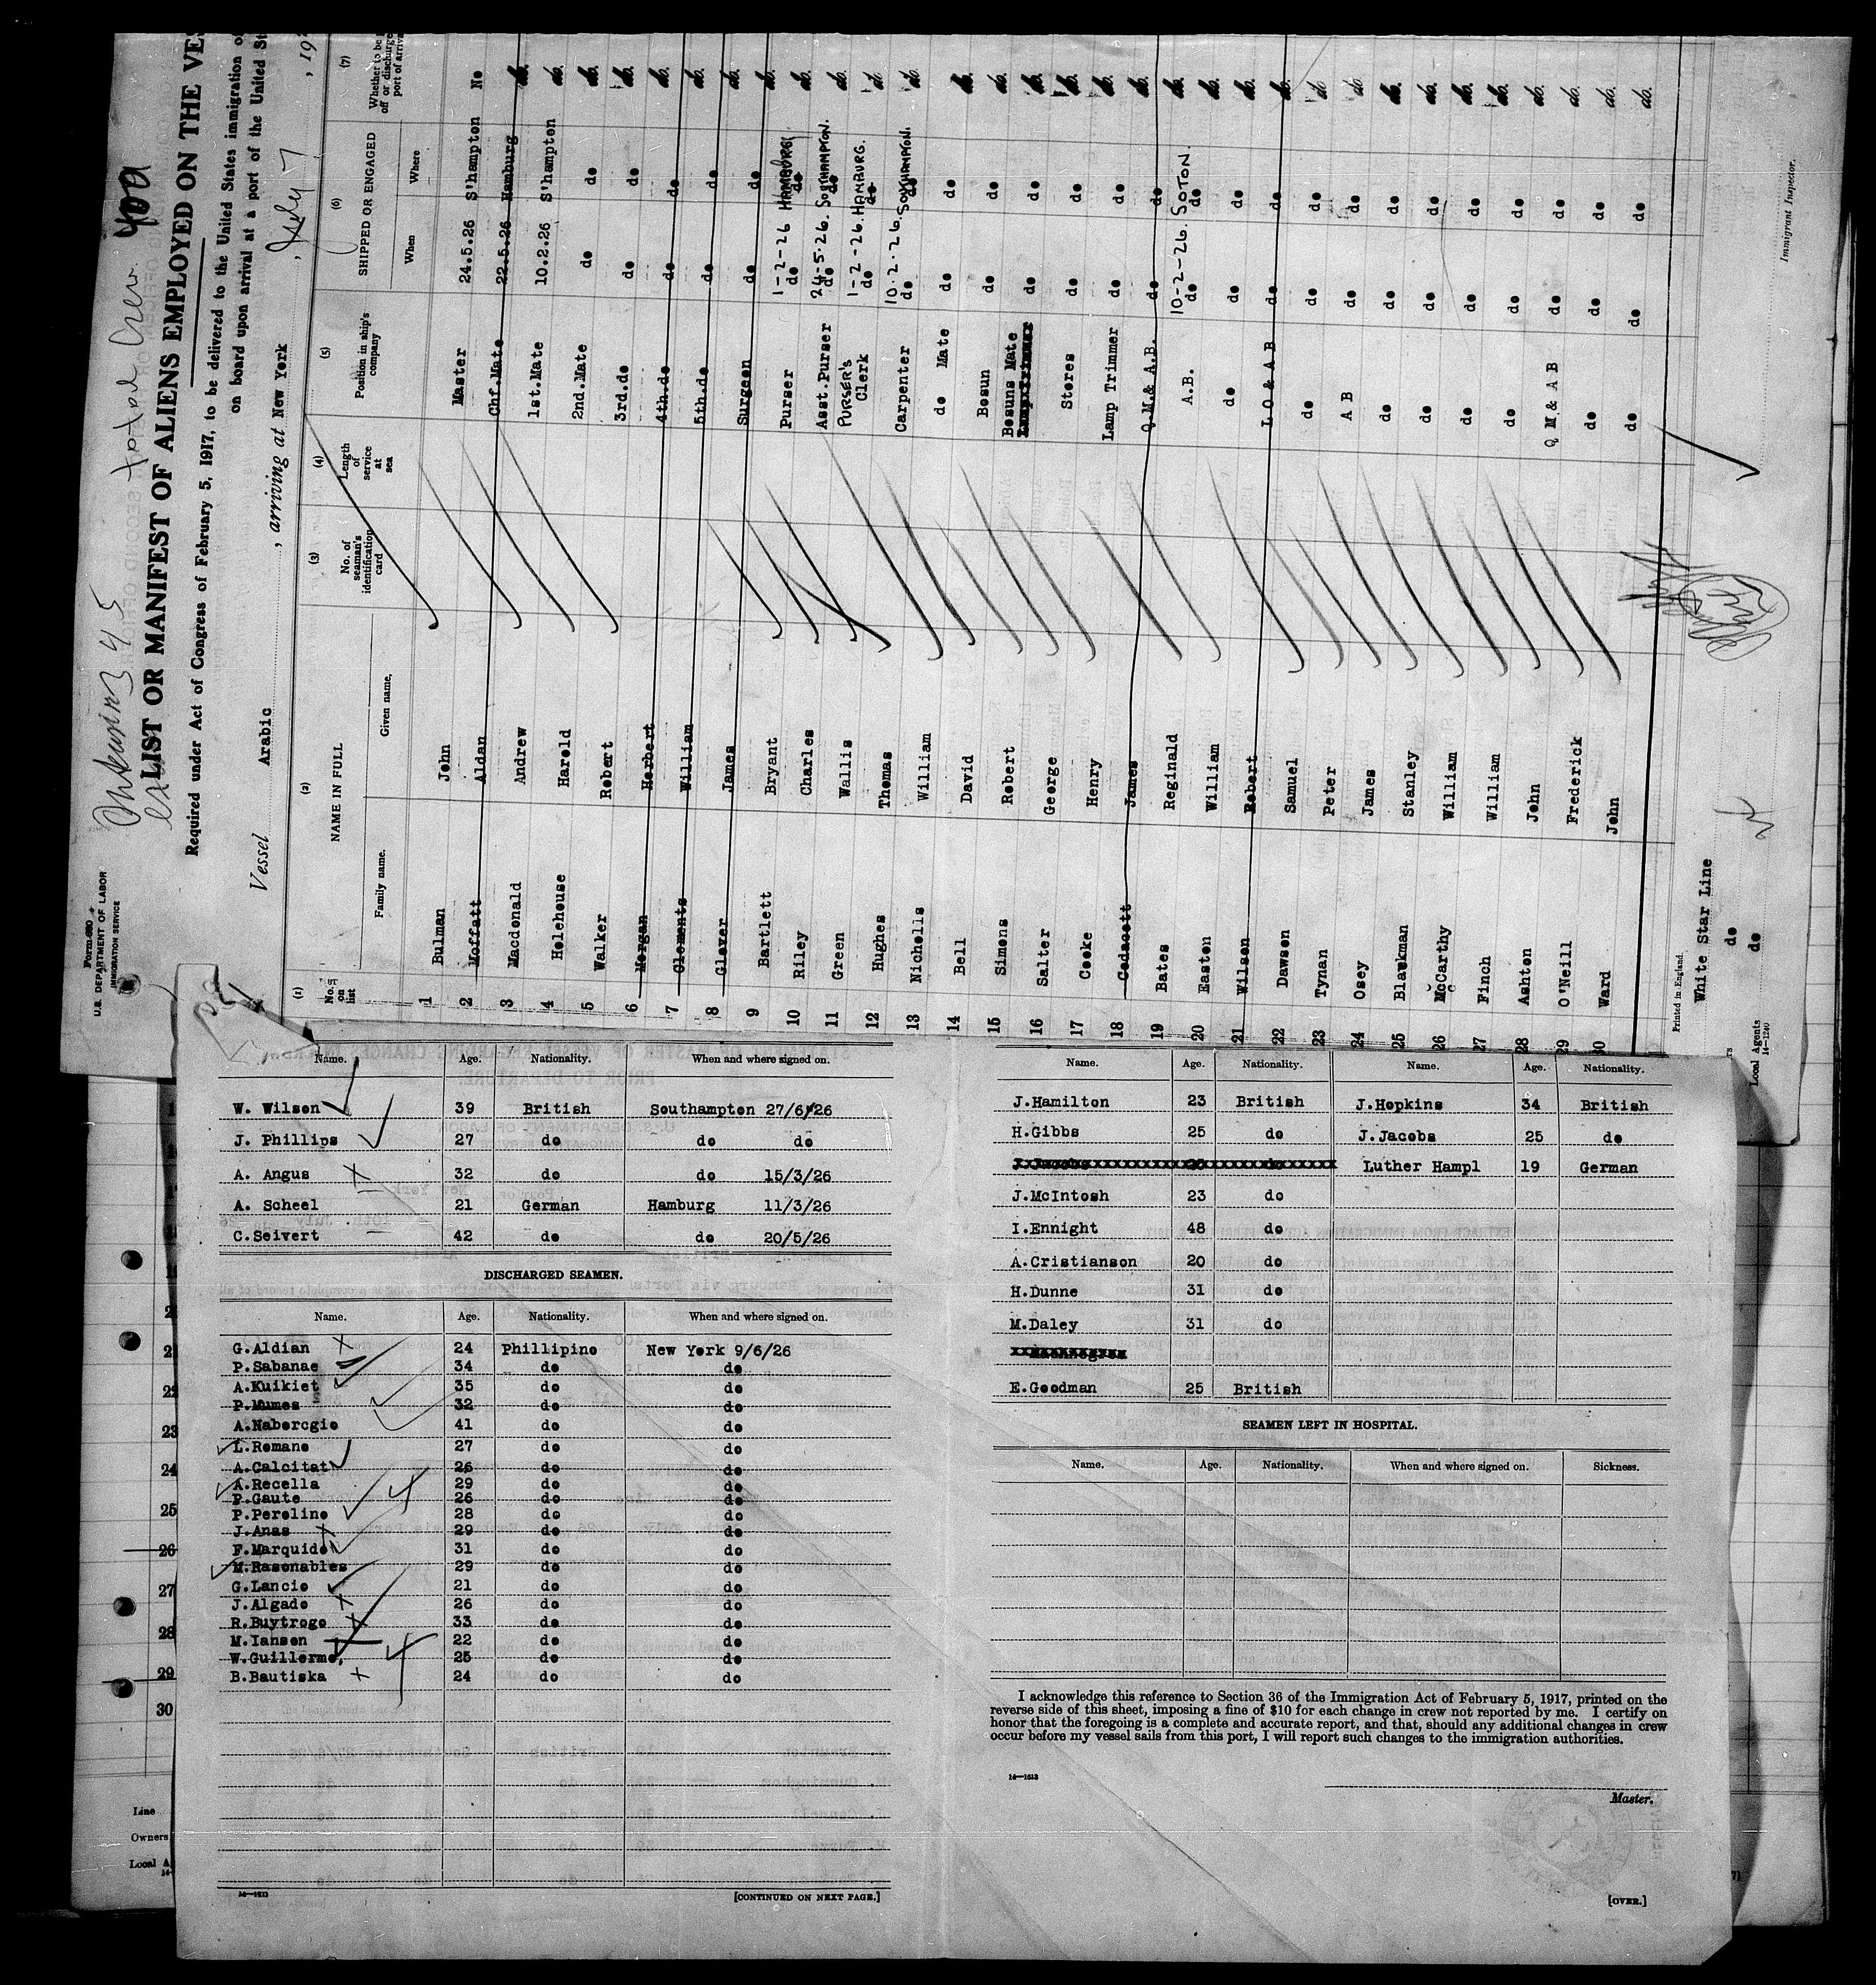 Form 680
U.S. DEPARTMENT OF LABOR
IMMIGRATION SERVICE
345
400 total Crew
LIST OR MANIFEST OF ALIENS EMPLOYED ON THE VES
Required under Act of Congress of February 5, 1917, to be delivered to the United States immigration of
on board upon arrival at a port of the United St
Vessel Arabic, arriving at New York, July 7, 19
(1) (2) (3) (4) (5) (6) (7)
No. on list NAME IN FULL No. of seaman's identification card Length of service at sea Position in ship's company SHIPPED OR ENGAGED Whether to be off or discharge port of arriva
Family name. Given name. When Where
1 Bulman John Master 24.5.26 S'hampton No
2 Moffatt Aldan Chf.Mate 22.5.26 Hamburg do.
3 Macdonald Andrew 1st.Mate 10.2.26 S'hampton do.
4 Holehouse Harold 2nd.Mate do do do.
5 Walker Robert 3rd.do do do do.
6 Morgan Herbert 4th.do do do do.
7 Clements William 5th.do do do do.
8 Glover James Surgeon do do do.
9 Bartlett Bryant Purser 1-2-26 HAMBURG do do do.
10 Riley Charles Asst.Purser 24-5-26. SOUTHAMPTON. do do do.
11 Green Wallis PURSER'S Clerk 1-2-26. HAMBURG. do do do.
12 Hughes Thomas Carpenter 10.2.26. SOUTHAMPTON. do do do.
13 Nicholls William do Mate do do do.
14 Bell David Bosun do do do.
15 Simons Robert Bosuns Mate do do do.
16 Salter George Stores do do do.
17 Cooke Henry Lamp Trimmer do do do.
18 James Q.M.& A.B. do do do.
19 Bates Reginald A.B. 10-2-26. SOTON. do do do.
20 Easton William do do do do.
21 Wilson Robert L O & A B do do do.
22 Dawson Samuel do do do do.
23 Tynan Peter A B do do do.
24 Osey James do do do do.
25 Blackman Stanley do do do do.
26 McCarthy William do do do do.
27 Finch William do do do do.
28 Ashton John Q M & A B do do do.
29 O'Neill Frederick do do do do.
30 Ward John do do do do.
Printed in England.
White Star Line
do
Local Agents do
14-1240
Immigrant Inspector.
Name. Age. Nationality. When and where signed on.
W. Wilson 39 British Southampton 27/6/26
J. Phillips 27 do do do
A. Angus 32 do do 15/3/26
A. Scheel 21 German Hamburg 11/3/26
C.Seivert 42 do do 20/5/26
DISCHARGED SEAMEN.
Name. Age. Nationality. When and where signed on.
G.Aldian 24 Phillipine New York 9/6/26
P.Sabanae 34 do do
A.Kuikiet 35 do do
P.Mumes 32 do do
A.Naborcgio 41 do do
L.Romano 27 do do
A.Calcitat 26 do do
A.Recella 29 do do
P.Gaute 26 do do
P.Peroline 28 do do
J.Anas 29 do do
F.Marquido 31 do do
M.Rasonables 29 do do
G.Lancio 21 do do
J.Algado 26 do do
R.Buytrogo 33 do do
M.Ianson 22 do do
W.Guillermo, 25 do do
B.Bautiska 24 do do
14—1613
[CONTINUED ON NEXT PAGE.]
Name. Age. Nationality. Name. Age. Nationality.
J.Hamilton 23 British J.Hopkins 34 British
H.Gibbs 25 do J.Jacobs 25 do
J.Jacobs 25 do Luther Hampl 19 German
J.McIntosh 23 do
I.Ennight 48 do
A.Cristianson 20 do
H.Dunne 31 do
M.Daley 31 do
E.Goodman 25 British
SEAMEN LEFT IN HOSPITAL.
Name. Age. Nationality. When and where signed on. Sickness.
I acknowledge this reference to Section 36 of the Immigration Act of February 5, 1917, printed on the
reverse side of this sheet, imposing a fine of $10 for each change in crew not reported by me. I certify on
honor that the foregoing is a complete and accurate report, and that, should any additional changes in crew
occur before my vessel sails from this port, I will report such changes to the immigration authorities.
14—1613
Master.
[OVER.]
21
22
23
24
25
26
27
28
29
30
Line
Owners
Local A